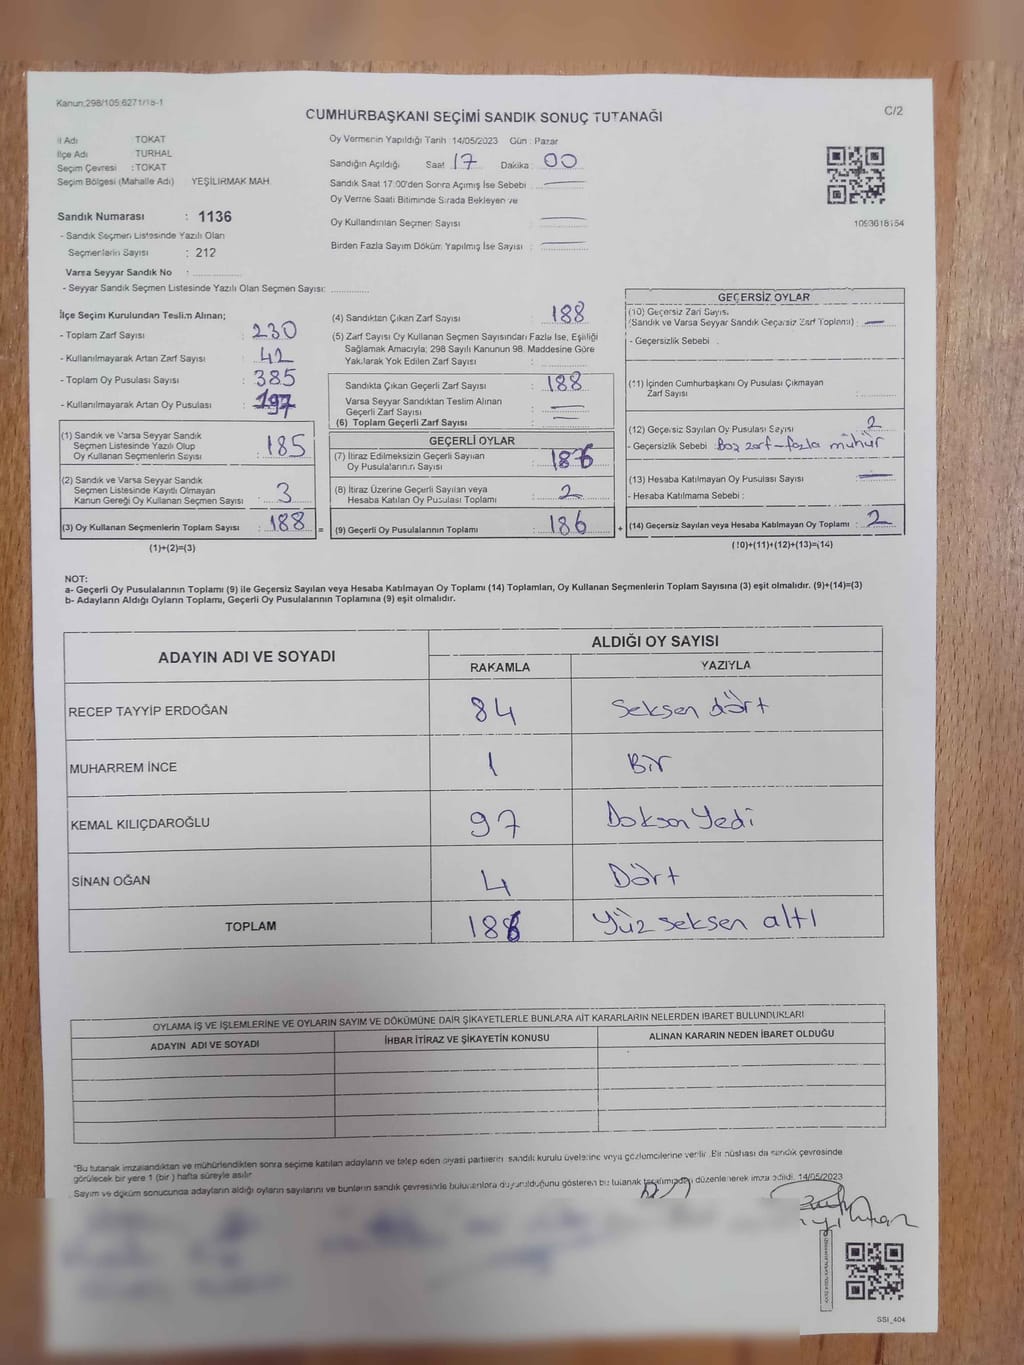 Kanun;298/105;6271/18-1
C/2
CUMHURBAŞKANI SEÇİMİ SANDIK SONUÇ TUTANAĞI
İl Adı TOKAT
İlçe Adı TURHAL
Seçim Çevresi : TOKAT
Seçim Bölgesi (Mahalle Adı) YEŞİLIRMAK MAH.
Sandık Numarası : 1136
- Sandık Seçmen Listesinde Yazılı Olan
Seçmenlerin Sayısı : 212
Varsa Seyyar Sandık No :
- Seyyar Sandık Seçmen Listesinde Yazılı Olan Seçmen Sayısı:
Oy Vermenin Yapıldığı Tarih 14/05/2023 Gün : Pazar
Sandığın Açıldığı Saat 17 Dakika : 00
Sandık Saat 17:00'den Sonra Açımış İse Sebebi : —
Oy Verme Saati Bitiminde Sırada Bekleyen ve
Oy Kullandırılan Seçmen Sayısı —
Birden Fazla Sayım Döküm Yapılmış İse Sayısı : —
1093618154
İlçe Seçim Kurulundan Teslim Alınan;
- Toplam Zarf Sayısı : 230
- Kullanılmayarak Artan Zarf Sayısı : 42
- Toplam Oy Pusulası Sayısı : 385
- Kullanılmayarak Artan Oy Pusulası : 197
(1) Sandık ve Varsa Seyyar Sandık
Seçmen Listesinde Yazılı Olup
Oy Kullanan Seçmenlerin Sayısı : 185
(2) Sandık ve Varsa Seyyar Sandık
Seçmen Listesinde Kayıtlı Olmayan
Kanun Gereği Oy Kullanan Seçmen Sayısı : 3
(3) Oy Kullanan Seçmenlerin Toplam Sayısı : 188 =
(1)+(2)=(3)
(4) Sandıktan Çıkan Zarf Sayısı : 188
(5) Zarf Sayısı Oy Kullanan Seçmen Sayısından Fazla İse, Eşitliği
Sağlamak Amacıyla; 298 Sayılı Kanunun 98. Maddesine Göre
Yakılarak Yok Edilen Zarf Sayısı :
Sandıkta Çıkan Geçerli Zarf Sayısı : 188
Varsa Seyyar Sandıktan Teslim Alınan
Geçerli Zarf Sayısı : —
(6) Toplam Geçerli Zarf Sayısı : —
GEÇERLİ OYLAR
(7) İtiraz Edilmeksizin Geçerli Sayılan
Oy Pusulalarının Sayısı : 186
(8) İtiraz Üzerine Geçerli Sayılan veya
Hesaba Katılan Oy Pusulası Toplamı : 2
(9) Geçerli Oy Pusulalarının Toplamı : 186 +
GEÇERSİZ OYLAR
(10) Geçersiz Zarf Sayısı
(Sandık ve Varsa Seyyar Sandık Geçersiz Zarf Toplamı) : —
- Geçersizlik Sebebi :
(11) İçinden Cumhurbaşkanı Oy Pusulası Çıkmayan
Zarf Sayısı :
(12) Geçersiz Sayılan Oy Pusulası Sayısı : 2
- Geçersizlik Sebebi : Boş zarf-fazla mühür
(13) Hesaba Katılmayan Oy Pusulası Sayısı : —
- Hesaba Katılmama Sebebi :
(14) Geçersiz Sayılan veya Hesaba Katılmayan Oy Toplamı : 2
(10)+(11)+(12)+(13)=(14)
NOT:
a- Geçerli Oy Pusulalarının Toplamı (9) ile Geçersiz Sayılan veya Hesaba Katılmayan Oy Toplamı (14) Toplamları, Oy Kullanan Seçmenlerin Toplam Sayısına (3) eşit olmalıdır. (9)+(14)=(3)
b- Adayların Aldığı Oyların Toplamı, Geçerli Oy Pusulalarının Toplamına (9) eşit olmalıdır.
ADAYIN ADI VE SOYADI
ALDIĞI OY SAYISI
RAKAMLA YAZIYLA
RECEP TAYYİP ERDOĞAN 84 Seksen dört
MUHARREM İNCE 1 Bir
KEMAL KILIÇDAROĞLU 97 Doksan Yedi
SİNAN OĞAN 4 Dört
TOPLAM 186 Yüz seksen altı
OYLAMA İŞ VE İŞLEMLERİNE VE OYLARIN SAYIM VE DÖKÜMÜNE DAİR ŞİKAYETLERLE BUNLARA AİT KARARLARIN NELERDEN İBARET BULUNDUKLARI
ADAYIN ADI VE SOYADI İHBAR İTİRAZ VE ŞİKAYETİN KONUSU ALINAN KARARIN NEDEN İBARET OLDUĞU
*Bu tutanak imzalandıktan ve mühürlendikten sonra seçime katılan adayların ve talep eden siyasi partilerin sandık kurulu üyelerine veya gözlemcilerine verilir. Bir nüshası da sandık çevresinde
görülecek bir yere 1 (bir) hafta süreyle asılır.
Sayım ve döküm sonucunda adayların aldığı oyların sayılarını ve bunların sandık çevresinde bulunanlara duyurulduğunu gösteren bu tutanak tarafımızdan düzenlenerek imza edildi. 14/05/2023
SSI_404